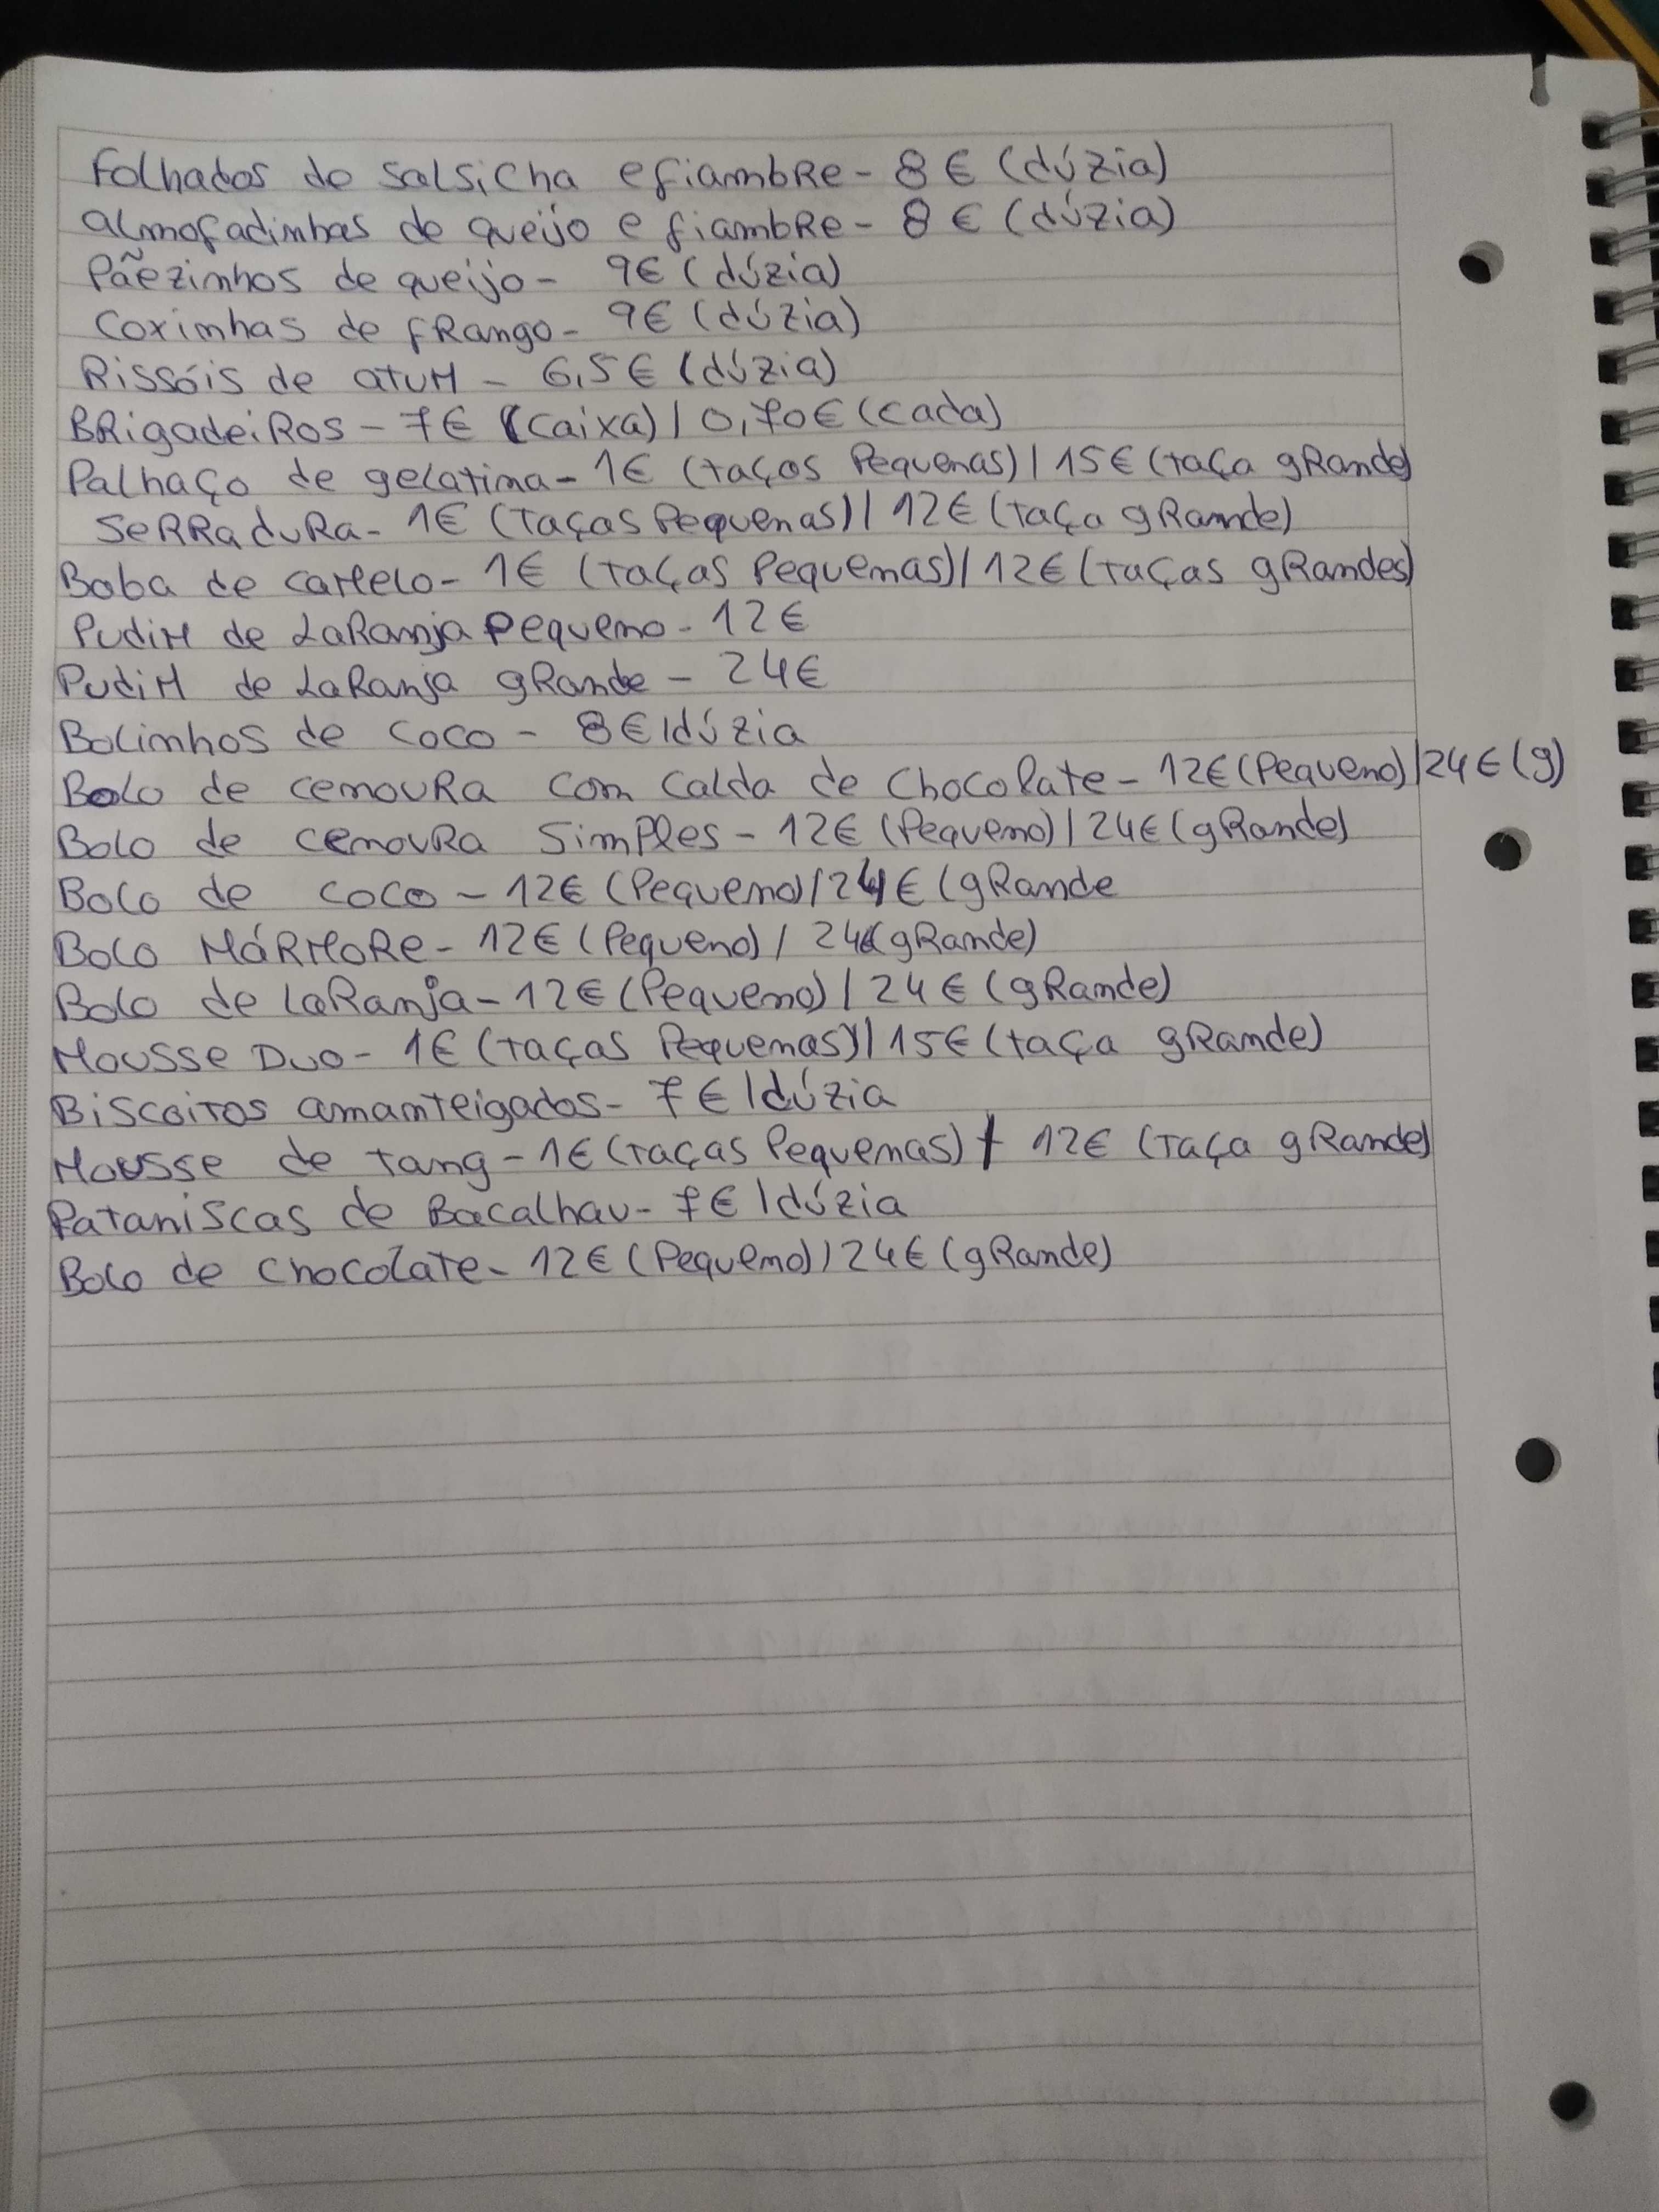 Folhados de salsicha e fiambre - 8 € (dúzia)
almofadinhas de queijo e fiambre - 8 € (dúzia)
Pãezinhos de queijo - 9€ (dúzia)
Coxinhas de frango - 9€ (dúzia)
Rissóis de atum - 6,5€ (dúzia)
Brigadeiros - 7€ (caixa) / 0,70€ (cada)
Palhaço de gelatina - 1€ (taças Pequenas) / 15€ (taça grande)
Serradura - 1€ (Taças Pequenas) / 12€ (Taça grande)
Baba de camelo - 1€ (taças Pequenas) / 12€ (taças grandes)
Pudim de Laranja Pequeno - 12€
Pudim de Laranja grande - 24€
Bolinhos de coco - 8€/dúzia
Bolo de cenoura com calda de chocolate - 12€ (Pequeno) / 24€ (g)
Bolo de cenoura simples - 12€ (Pequeno) / 24€ (grande)
Bolo de coco - 12€ (Pequeno) / 24€ (grande
Bolo Mármore - 12€ (Pequeno) / 24€ (grande)
Bolo de laranja - 12€ (Pequeno) / 24€ (grande)
Mousse Duo - 1€ (taças Pequenas) / 15€ (taça grande)
Biscoitos amanteigados - 7€/dúzia
Mousse de tang - 1€ (taças Pequenas) / 12€ (Taça grande)
Pataniscas de Bacalhau - 7€/dúzia
Bolo de chocolate - 12€ (Pequeno) / 24€ (grande)